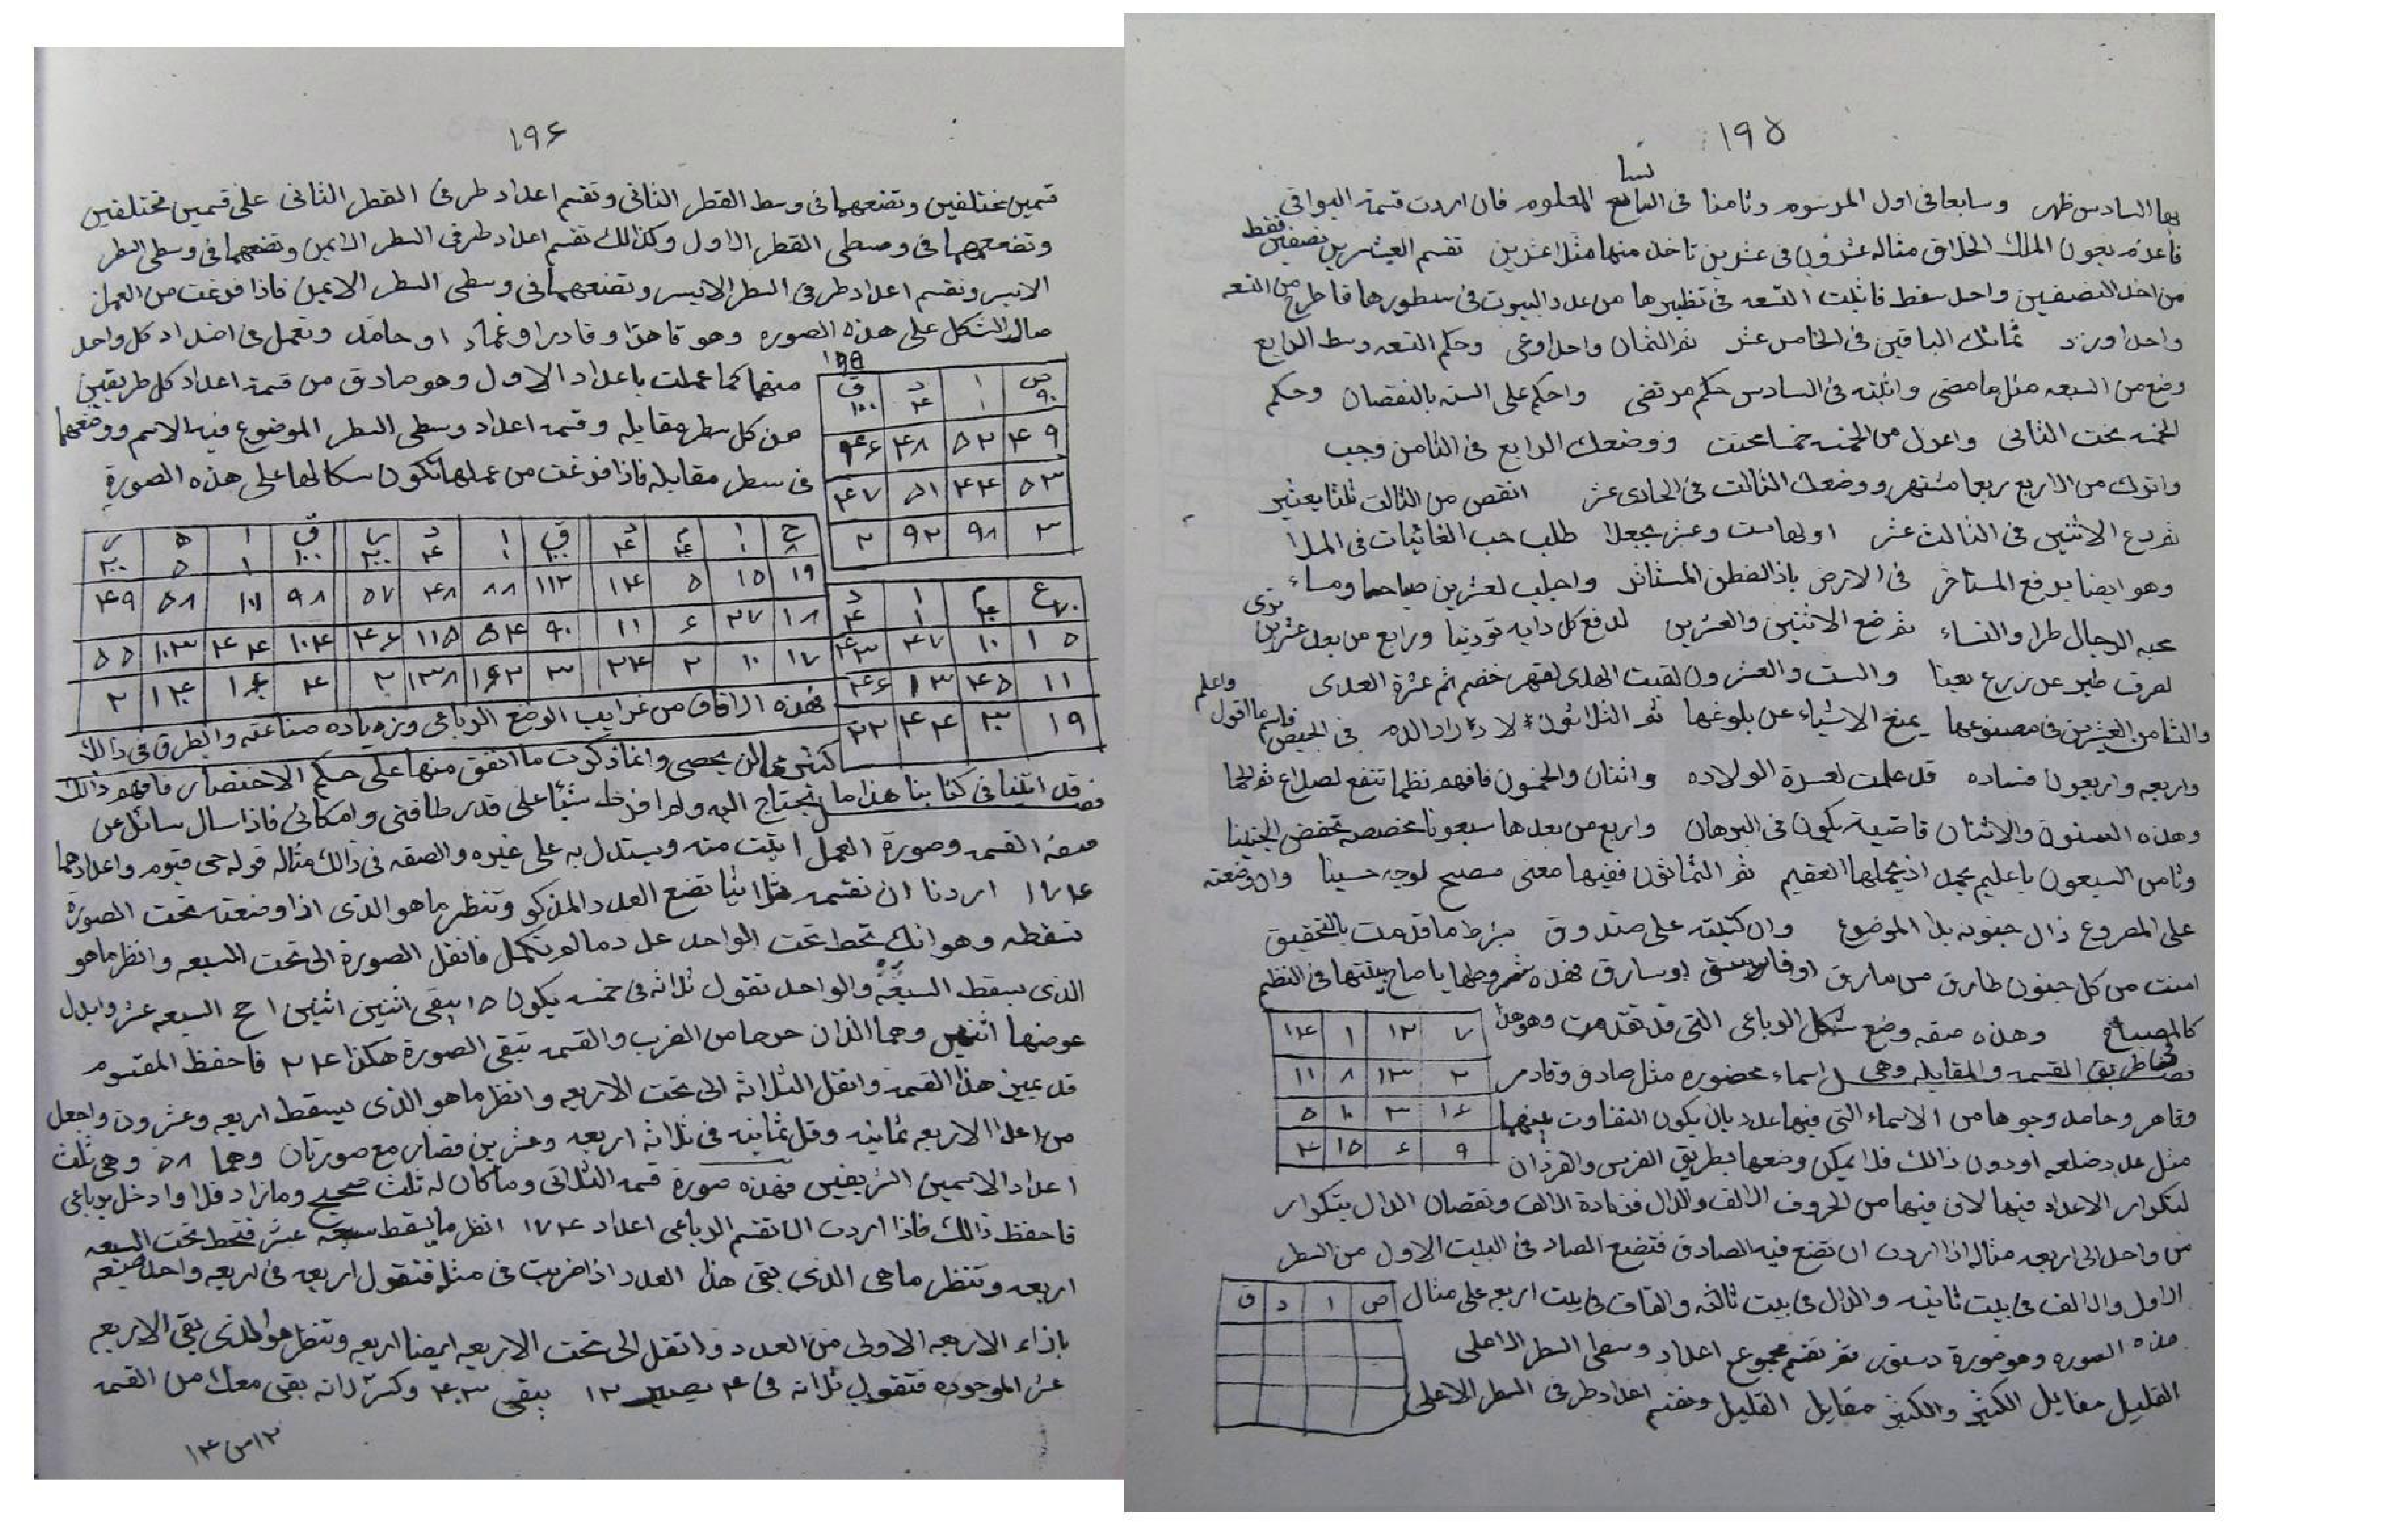 ١٩٥
بها السادس ظهر وسابعا فى اول المرسوم وثامنا فى المعلوم فان اردت قسمة البواقى
فاعدم بعون الملك الخلاق مثاله عشرون فى عشرين تاخذ منها مثل اعشرين تقسم العشرين نصفين فقط
من احد النصفين واحد سقط فاثبت التسعه فى نظيرها من عدد البيوت فى سطورها فاطرح من التسعه
واحدا وزد ثمانك الباقين فى الخامس عشر ثم الثمان واحدا وعى وحكم التسعه وسط الرابع
وضع من السبعه مثل ما مضى واثبته فى السادس حكم مرتضى واحكم على السته بالنقصان وحكم
الخمسه تحت الثانى واعزل من الخمسه خمسا ووضعك الرابع فى الثامن وجب
واترك من الاربع ربعا مشتهر ووضعك الثالث فى الحادى عشر انقص من الثالث ثلثا يعتبر
ثم دع الاثنين فى الثالث عشر اولها ست وعشر يجعلا طلب حب الغائبات فى الملا
وهو ايضا يدفع المستاخر فى الارض باذ الفطن المستاثر واجلب لعشرين صباحا ومساء
محبه الرجال طرا والنساء ثم ضع الاثنين والعشرين لدفع كل دابه توذينا ورابع من بعد عشرين ترى
لصرف طير عن زرع معينا والست والعشرون لقيت الهدى لقهر خصم ثم عشرة العدى واعلم
والثامن العشرين فى مصنوعها يمنع الاشياء عن بلوغها ثم الثلاثون لا دراد الدم فى الحيض فاسم ما اقول
واربعه واربعون فساده قد علمت لعسرة الولاده واثنان والخمسون فافهم نظما تنفع لصداع ثم الحما
وهذه الستون والاثنان قاضية يكون فى البرهان واربع من بعدها سبعونا مخصصه تحفض الجنينا
وثامن السبعون يا عليم يحمد اذ يحملها العقيم ثم الثمانون ففيها معنى مصبح لوجه حسينا وان وضعته
على المصروع زال جنونه بلا الموضوع وان كتبته على صندوق بشرط ما قدمت بالتحقيق
امنت من كل جنون طارق من مارق او فاسق او سارق فهذه شروطها يا صاح بينتها فى النظم
كالمصباح وهذه صفه وضع شكل الرباعى التى قد تقدمت وهو هذا
٧ ١٢ ١ ١٤
٢ ١٣ ٨ ١١
١٦ ٣ ١٠ ٥
٩ ٦ ١٥ ٤
فصل فى طريق القسمه والمقابله وهى اسماء مخصوره مثل صادق وقادر
وقاهر وحامد وجوها من الاسماء التى فيها عدد بان يكون التفاوت بينهما
مثل عدد ضلعه اودون ذالك فلا يمكن وضعها بطريق الفرس والفرزان
لتكرار الاعداد فيها لان فيها من الحروف الالف والدال فزيادة الالف ونقصان الدال بتكرار
من واحد الى اربعه مثاله اذا اردت ان تضع فيه الصادق فتضع الصاد فى البيت الاول من السطر
الاول والالف فى بيت ثانيه والدال فى بيت ثالثه والقاف فى بيت اربعه على مثال
ص ا د ق
هذه الصوره وهو صورة دستور ثم تقسم مجموع اعداد وسطى السطر الاعلى
القليل مقابل الكثير والكثير مقابل القليل وتقسم اعداد طرفى السطر الاعلى
١٩٦
قسمين مختلفين وتضعهما فى وسط القطر الثانى وتقسم اعداد طرفى القطر الثانى على قسمين مختلفين
وتضعهما فى وسطى القطر الاول وكذالك تقسم اعداد طرفى السطر الايمن وتضعهما فى وسطى السطر
الايسر وتقسم اعداد طرفى السطر الايسر وتضعهما فى وسطى السطر الايمن فاذا فرغت من العمل
صار الشكل على هذه الصوره وهو قاهرا وقادرا وعماد او حامد وتعمل فى اضداد كل واحد
منهما كما عملت باعداد الاول وهو صادق من قسمة اعداد كل طريقين
من كل سطر مقابله وقسمه اعداد وسطى السطر الموضوع فيه الاسم ووضعهما
فى سطر مقابله فاذا فرغت من عملها تكون سكالها على هذه الصورة
١٩٥
ص ا د ق
٩٠ ١ ٤ ١٠٠
٤٩ ٥٢ ٤٨ ٤٦
٥٣ ٤٤ ٥١ ٤٧
٣ ٩٨ ٩٢ ٢
ع م ا د
٧٠ ٤٠ ١ ٤
٥ ١ ١٠ ٤٧ ٤٣
١١ ٤٥ ١٣ ٤٦
١٩ ٣٠ ٤٤ ٢٢
ح ا م د ق ا د ر ق ا ه ر
٨ ١ ٤٠ ٤ ١٠٠ ١ ٤ ٢٠٠ ١٠٠ ١ ٥ ٢٠٠
١٩ ١٥ ٥ ١٤ ١١٢ ٨٨ ٤٨ ٥٧ ٩٨ ١٠١ ٥٨ ٤٩
١٨ ٢٧ ٦ ١١ ٩٠ ٥٤ ١١٥ ٤٦ ١٠٤ ٤٤ ١٠٣ ٥٥
١٧ ١٠ ٢ ٢٤ ٣ ١٦٢ ١٣٨ ٢ ٤ ١٦٠ ١٤٠ ٢
فهذه الافاق من غرايب الوضع الرباعى وزياده صناعته والطرق فى ذالك
كثير مما لن يحصى وانما ذكرت ما اتفق منها على حكم الاختصار فافهم ذالك
فصل قد اتينا فى كتابنا هذا ما يحتاج اليه ولم افرط شيئا على قدر طاقتى وامكانى فاذا سال سائل عن
صفة القسمه وصورة العمل اتيت منه ويستدل به على غيره والصفه فى ذالك مثاله قوله حى قيوم واعدادهما
١٧٤ اردنا ان نقسمه ثلاثيا تضع العدد المذكور وتنظر ما هو الذى اذا وضعته تحت الصورة
تسقطه وهو انك تحط تحت الواحد عدد ما لم يتكمل فانقل الصورة الى تحت السبعه وانظر ما هو
الذى يسقط السبعه والواحد تقول ثلاثه فى خمسه يكون ١٥ يبقى اثنين اثنين امح السبعه عشر وابدل
عوضها اثنين وهما اللذان خرجا من الضرب والقسمه تبقى الصورة هكذا ٢٤ فاحفظ المقسوم
قد عين هذا القسمه وانقل الثلاثه الى تحت الاربعه وانظر ما هو الذى يسقط اربعه وعشرون واجعل
من اعدا الاربعه ثمانيه وقل ثمانيه فى ثلاثه اربعه وعشرين فصار مع صورتان وهما ٥٨ وهى ثلث
اعداد الاسمين الشريفين فهذه صورة قسمه الثلاثى وما كان له ثلث صحيح وما زاد فلا وادخل برباعى
فاحفظ ذالك فاذا اردت ان تقسم الرباعى اعداد ١٧٤ انظر ما يسقط سبعه عشر فتحط تحت السبعه
اربعه وتنظر ما هى الذى بقى هذا العدد اذا ضربت فى مثله فتقول اربعه فى اربعه واحد ضعه
باذاء الاربعه الاولى من العدد وانتقل الى تحت الاربعه ايضا اربعه وتنظر هو الذى بقى الاربعه
عشر الموجوده فتقول ثلاثه فى ٤ يصير ١٢ يبقى ٤٣ وكسر لانه بقى معك من القسمه
١٢ من ١٤